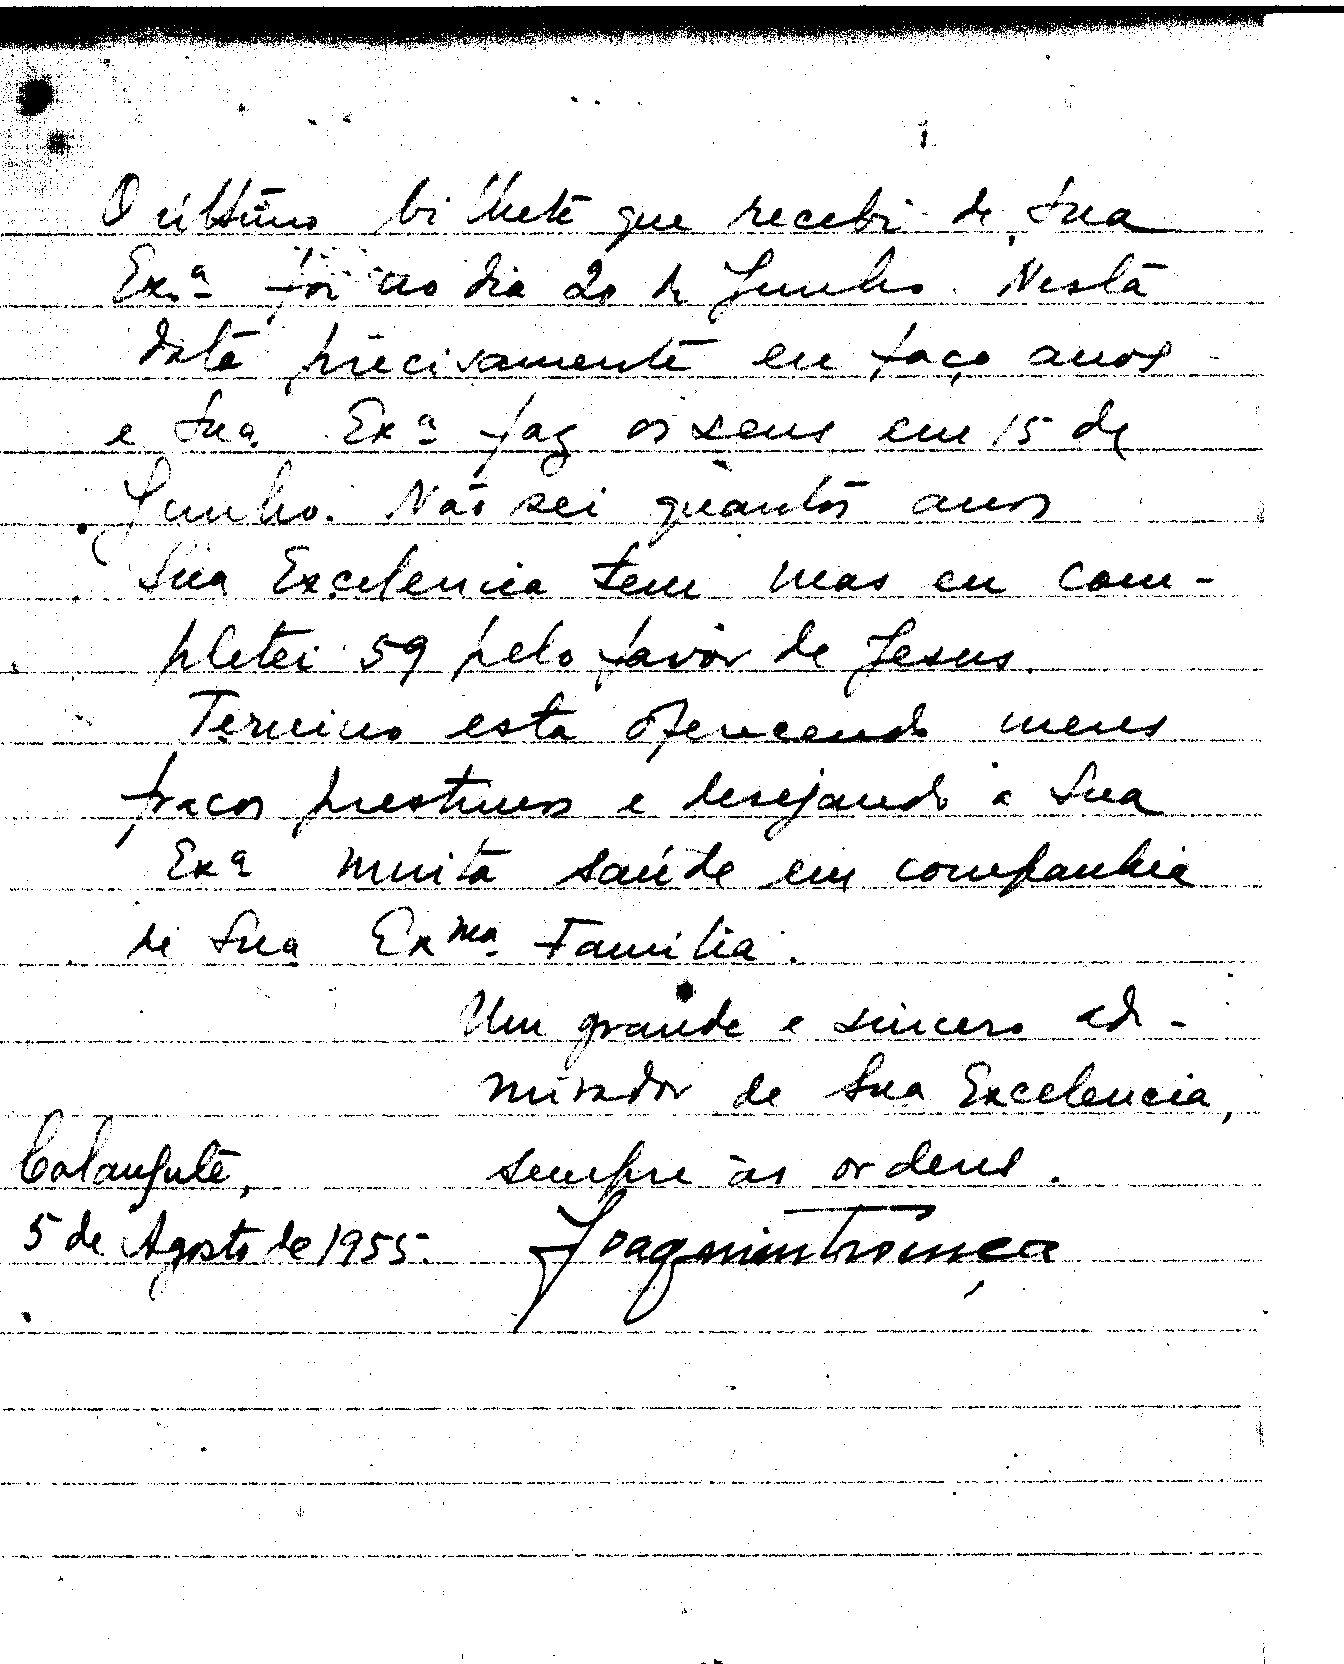 O ultimo bilhete que recebi de Sua
Exª foi no dia 20 de Junho. Nesta
data precisamente eu faço anos
e Sua Exª faz os seus em 15 de
Junho. Não sei quantos anos
Sua Excelencia tem mas eu com-
pletei 59 pelo favor de Jesus.
Termino esta oferecendo meus
fracos prestimos e desejando a Sua
Exª muita saúde em companhia
de Sua Exma Familia.
Um grande e sincero ad-
mirador de Sua Excelencia,
sempre às ordens.
Calangute,
5 de Agosto de 1955.
Joaquim